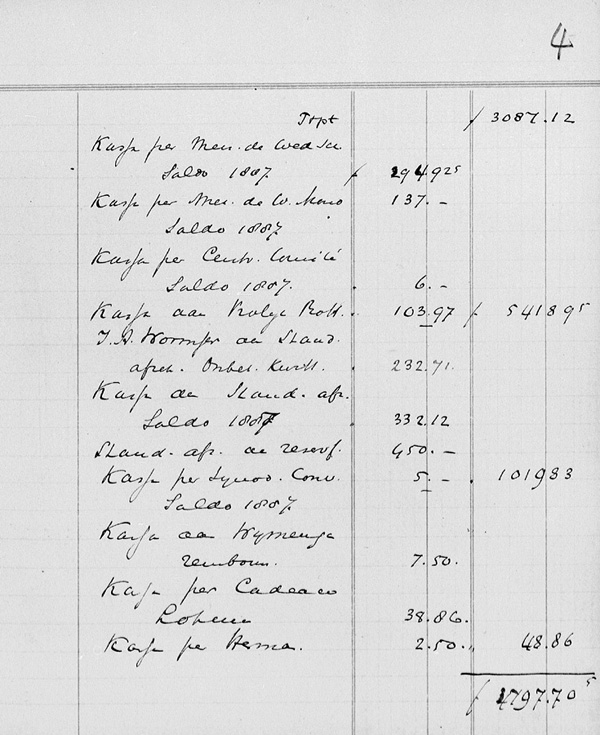 4
Trpt ƒ 3087.12
Kassa per Mev. de Wed
Saldo 1887 ƒ 294.92⁵
Kassa per Mev. de W.
Saldo 1887 137.-
Kassa per Centr. Comité
Saldo 1887. 6.-
Kassa aan Bott. 103.97 ƒ 541.89⁵
J.A. Wormser aan Stand.
afrek. Onbet. Kwitt. 232.71.
Kassa de Stand. afr.
Saldo 1887 332.12
Stand. afr. aan reserf. 450.-
Kassa per Synod. Conv. 5.- 1019.83
Saldo 1887.
Kassa aan Wymenga
rembours. 7.50.
Kassa per Cadeau
Lohman 38.86.
Kassa per 2.50. 48.86
ƒ 4797.70⁵